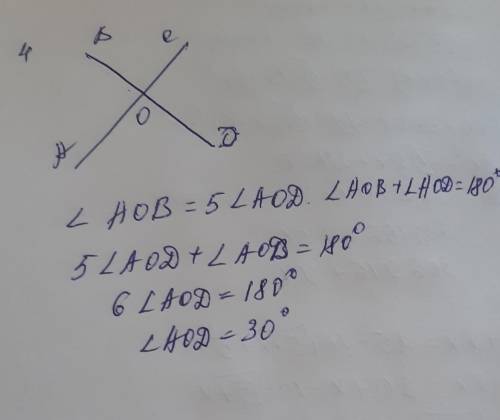 4
B C
O
A D
∠ AOB = 5 ∠AOD. ∠AOB + ∠AOD = 180°
5 ∠AOD + ∠AOB = 180°
6 ∠AOD = 180°
∠AOD = 30°